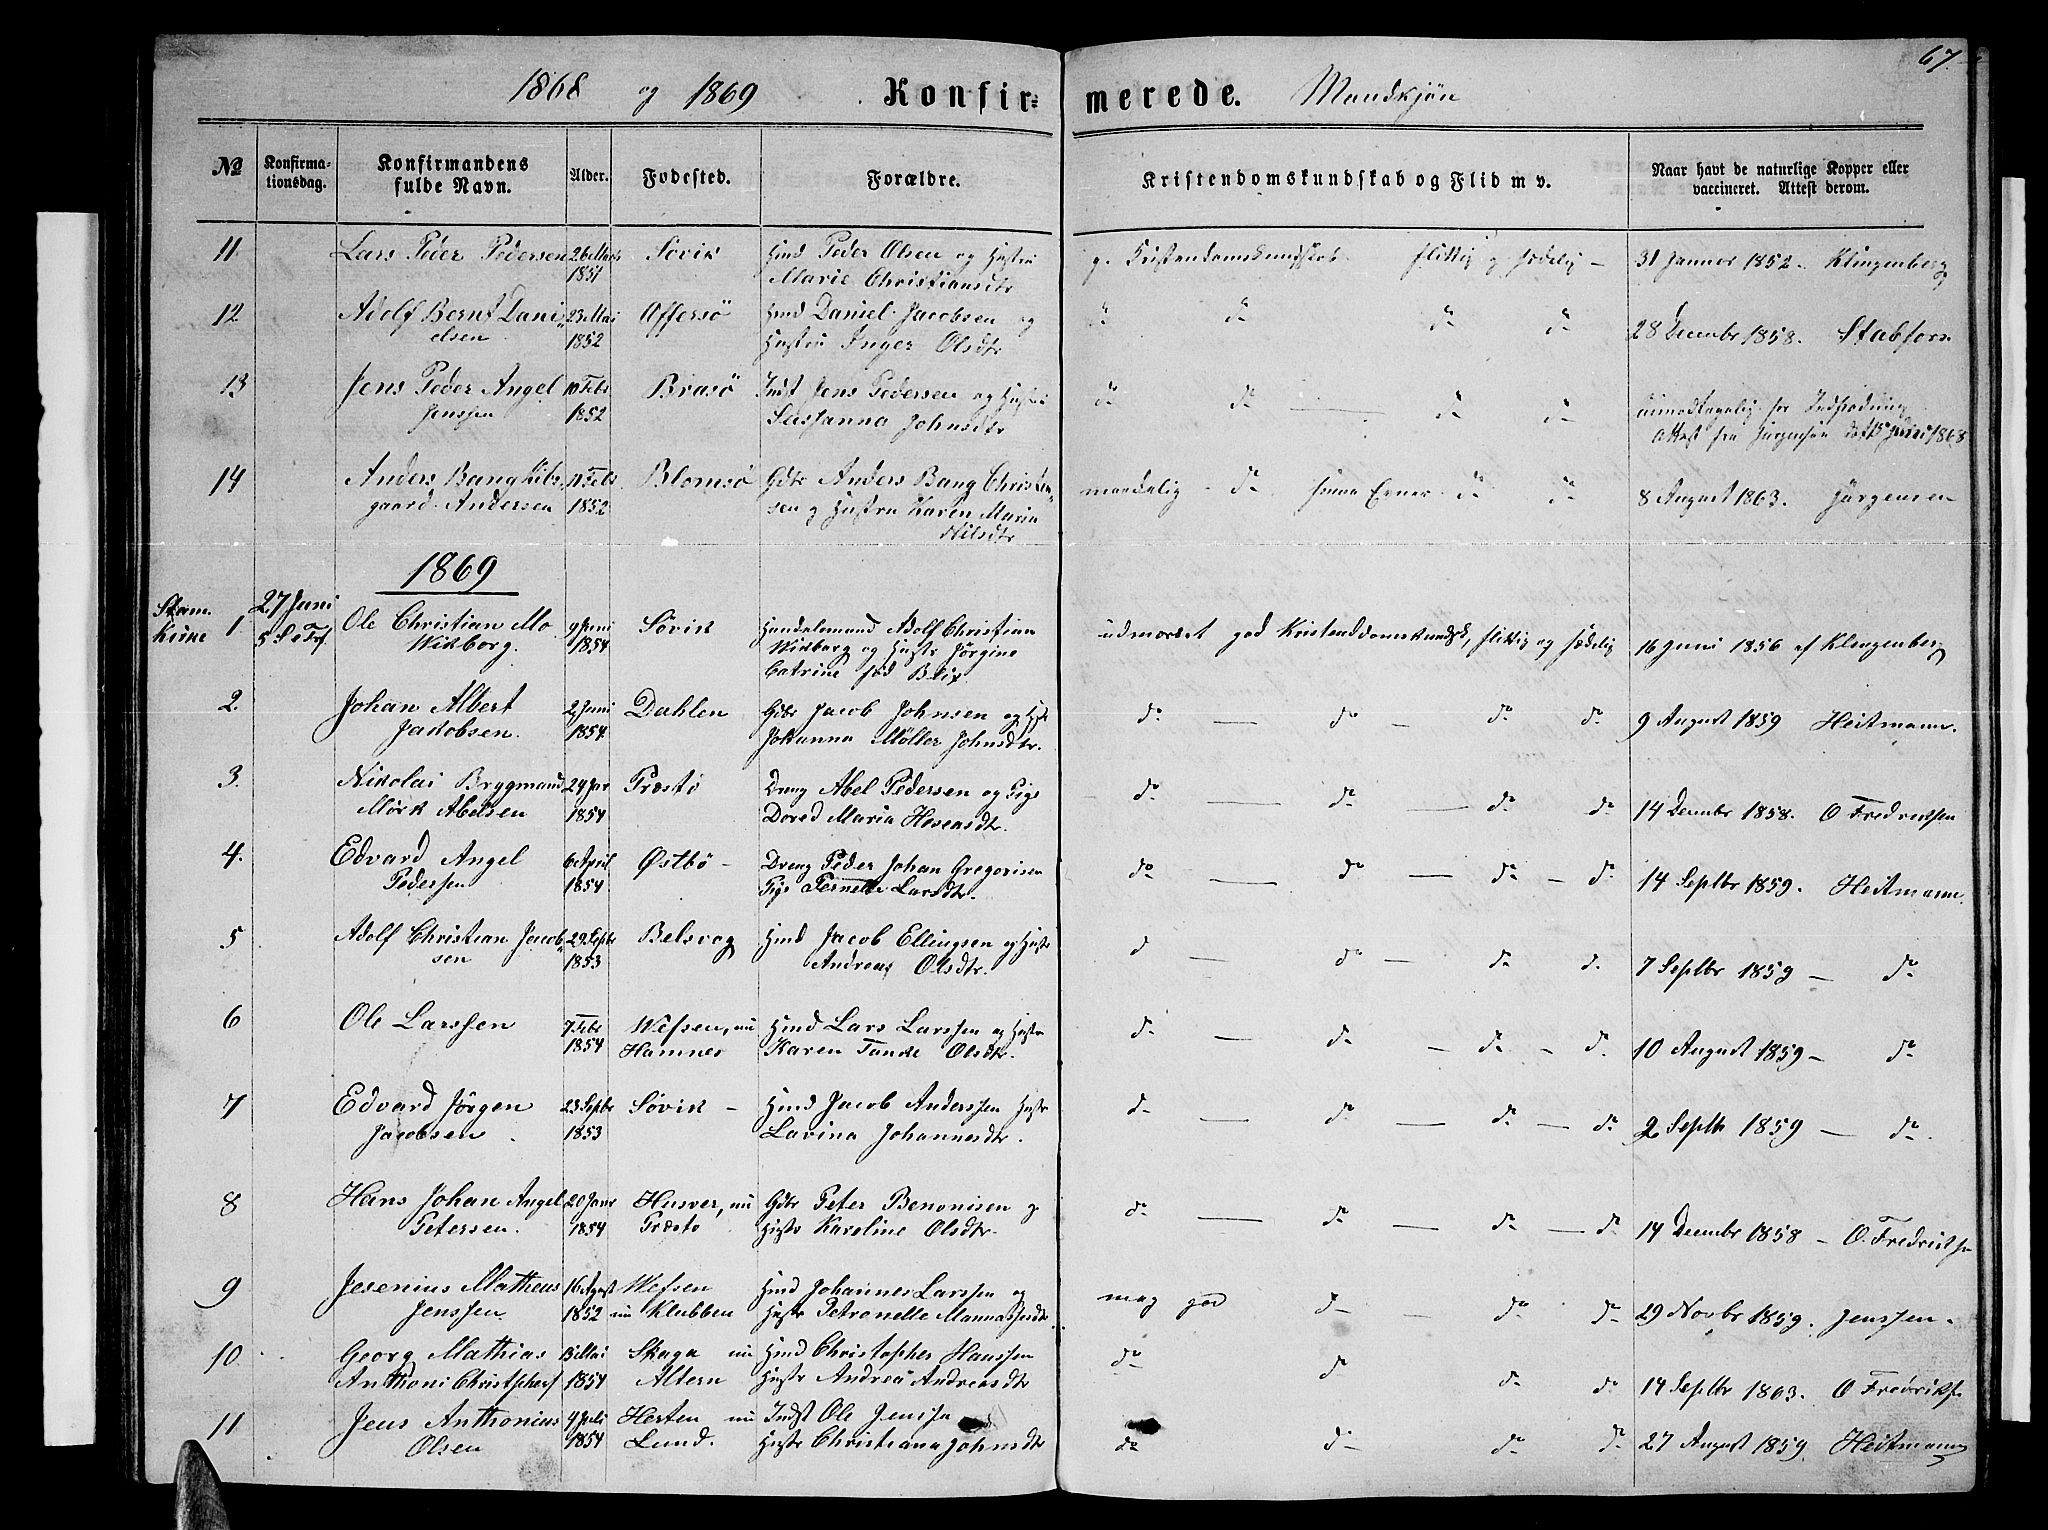 67.
1868 og 1869 Konfir- merede. Mandkjön
No
Konfirma-
tionsdag.
Konfirmandens
fulde Navn.
Alder.
Fødested.
Forældre.
Kristendomskundskab og Flid m v.
Naar havt de naturlige Kopper eller
vaccineret. Attest derom.
11 Lars Peder Pedersen 26 Marts Søvik Hmd Peder Olsen og Hustru g. Kristendomskundskab flittig og sædelig - 31 Januar 1852. Klingenberg
1851 Marie Christiansdtr
12 Adolf Bernt Dani- 23 Mai Offersö Hmd Daniel Jacobsen og do do do do 28 Decembr 1858. Stabfors
elsen 1852 Hustru Inger Olsdtr
13 Jens Peder Angel 10 Febr Brasö Indst Jens Pedersen og Hustru do do do do
Jenssen 1852 Sussanna Johnsdtr Attest fra Jürgensen 1868
14 Anders Bang 11 Febr Blomsö Gdbr Anders Bang Christen- maadelig do Evner do do 8 August 1863. Jürgensen
gaard Andersen 1852 sen og Hustru Karen Maria
Nilsdtr
1869
Stam. 27 Juni
Kirke 1 5 S e Trf. Ole Christian Mo 9 Juni Søvik Handelsmand Adolf Christian udmærket god Kristendomskundsk, flittig og sædelig 16 Juni 1856 af Klingenberg
Wikborg. 1854 Wikborg og Hustr Jørgine
Catrine fød Blix
2. Johan Albert 2 Juni Dahlen Gdbr Jacob Johnsen og Hstr do do do do 9 August 1859 Heitmann.
Jakobsen. 1854 Johanna Möller Johnsdtr.
3. Nikolai Bryggmand 24 Jar Præstö Dreng Abel Pedersen og Pige do do do do 14 Decembr 1858. O Fredriksen
Mörk Abelsen 1854 Dored Maria Hesensdtr.
4. Edvard Angel 6 April Østbö - Dreng Peder Johan Gregorisen do do do do 14 Septbr 1859. Heitmann.
Pedersen 1854 Pige Pernelle Larsdtr.
5 Adolf Christian Jacob- 29 Septbr Belsvag Hmd Jacob Ellingsen og Hustr do do do do 7 Septbr 1859 - do
sen 1853 Andrea Olsdtr.
6 Ole Larssen 7 Febr Wefsen, nu Hmd Lars Larssen og Hustr do do do do 10 August 1859 - do
1854 Hamnes Karen Tande Olsdtr.
7 Edvard Jörgen 23 Septbr Søvik - Hmd Jacob Anderssen Hustr do do do do 2 Septbr 1859 - do
Jacobsen 1853 Lavina Johannesdtr.
8 Hans Johan Angel 20 Janr Husvær, nu Gdbr Peter Benonisen og do do do do 14 Decembr 1858 - O. Fredriksn
Petersen. 1854 Præstö Hustr Karoline Olsdtr.
9 Jesenius Matheus 16 August Wefsen Hmd Johannes Larssen og meg god do do do 29 Novbr 1859. Jenssen.
Jenssen. 1852 nu Klubben Hustr Petronelle Mannassesdtr.
10. Georg Mathias 13 Mai Skaga nu Hmd Christopher Hanssen do do do do 14 Septbr 1863. O Fredriks
Anthoni Christphers 1854 Altern Hustr Andrea Andreasdtr
11 Jens Anthonius 9 Juli Herten nu Indst Ole Jenssen do do do do 27 August 1859. Heitmann
Olsen 1854 Lund. Hustr Christiana Johnsdtr